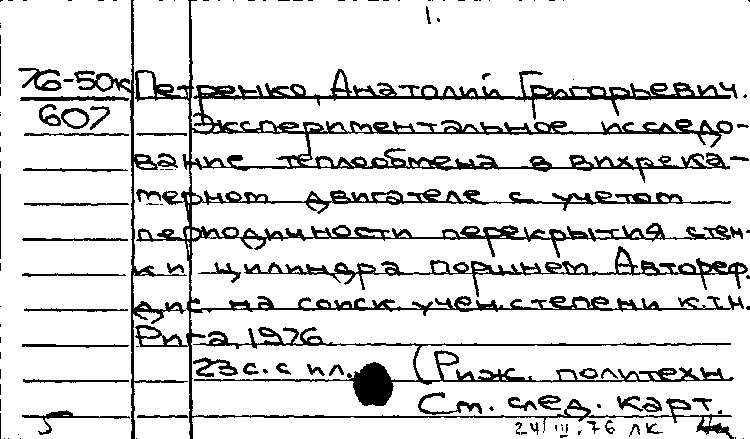 1.
76-50к Петренко, Анатолий Григорьевич.
607 Экспериментальное исследо-
вание теплообмена в вихрека-
мерном двигателе с учетом
периодичности перекрытия стен-
ки цилиндра поршнем. Автореф.
дис. на соиск. учен. степени к.т.н.
Рига, 1976.
23 с. с ил. (Риж. политехн.
См. след. карт.
5 24/III.76 ЛК